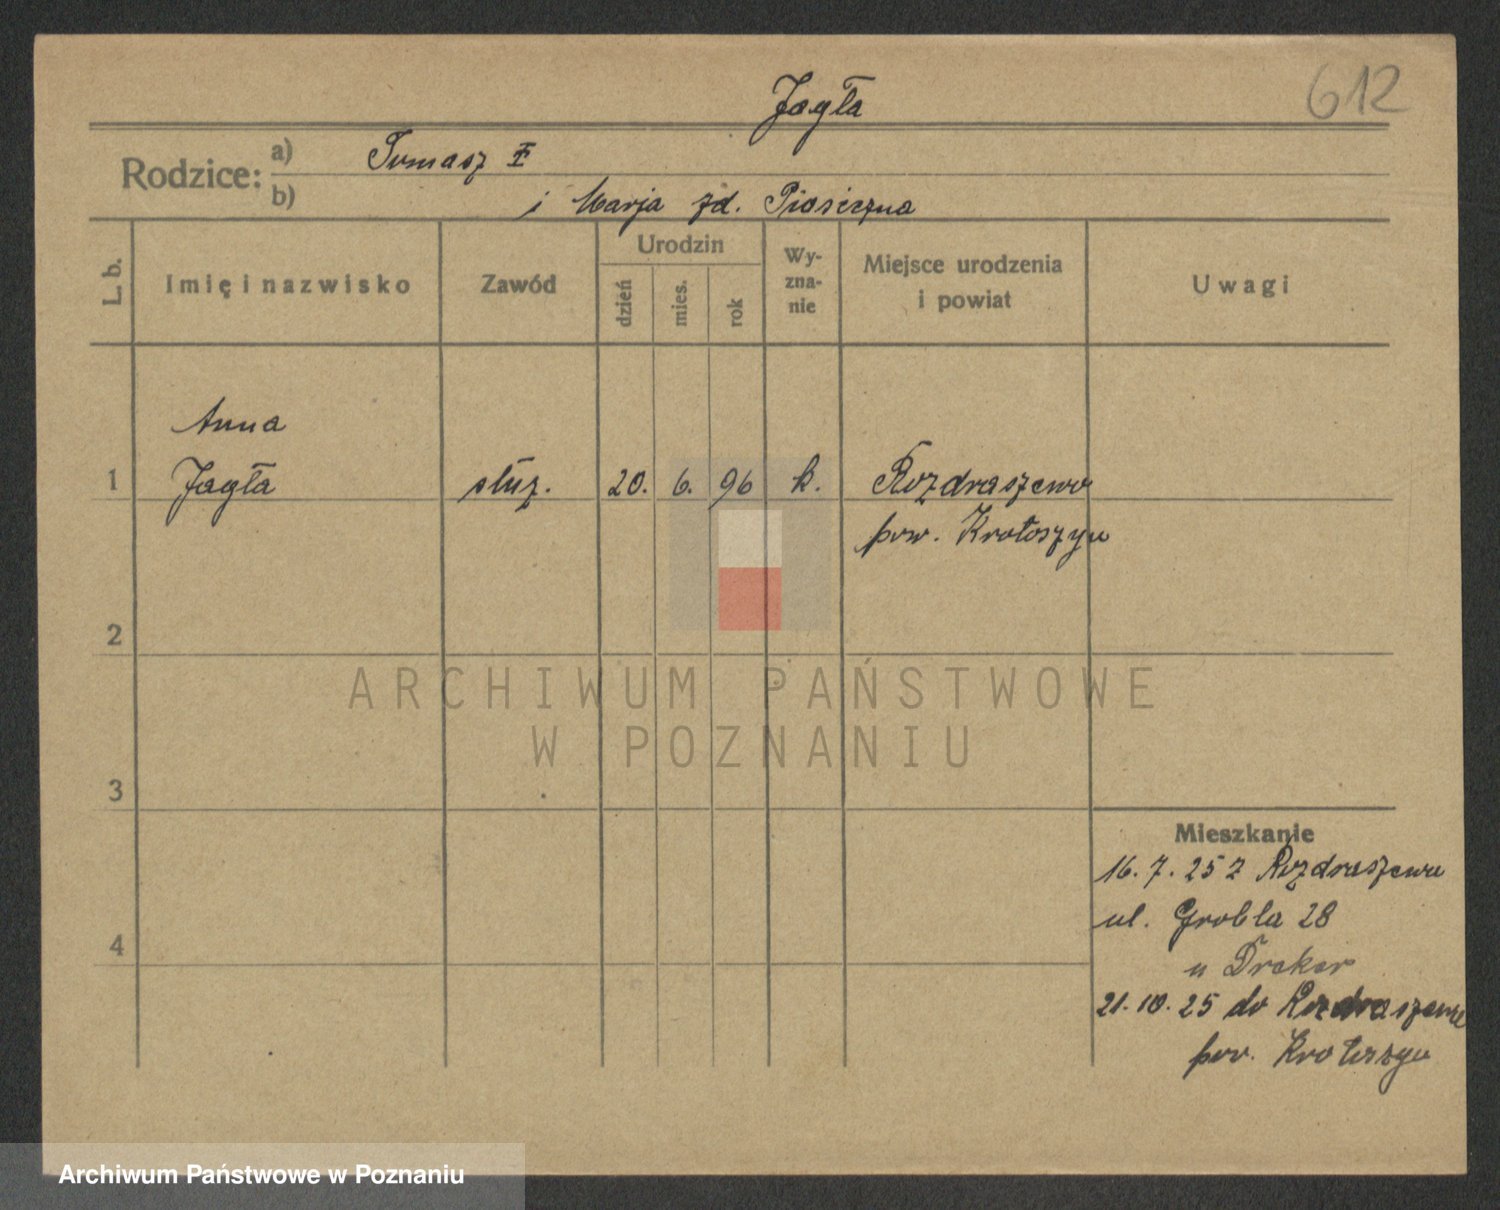 612
Jagła
Rodzice: a) Tomasz
b) i Marja zd. Piosiczna
L. b. Imię i nazwisko Zawód Urodzin dzień mies. rok Wy-zna-nie Miejsce urodzenia i powiat Uwagi
Anna
1 Jagła służ. 20. 6. 96 k. Rozdraszewo
pow. Krotoszyn
2
ARCHIWUM PAŃSTWOWE
W POZNANIU
3
Mieszkanie
16. 7. 25 z Rozdraszewa
4 ul. Grobla 28
u
21. 10. 25 do Rozdraszewa
pow. Krotoszyn
Archiwum Państwowe w Poznaniu